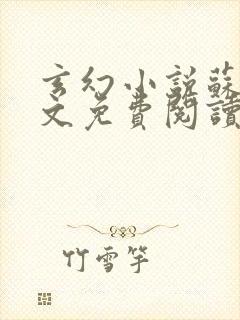 玄幻小說蘇
文免費閱讀
竹雪竿